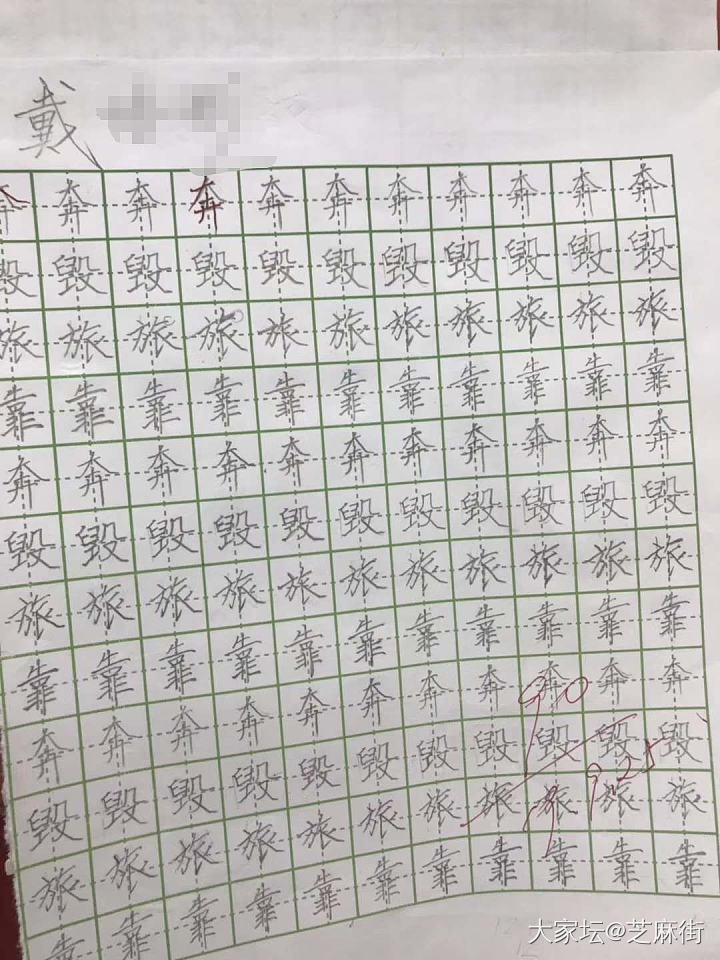 戴
奔奔奔奔奔奔奔奔奔奔奔
毁毁毁毁毁毁毁毁毁毁毁
旅旅旅旅旅旅旅旅旅旅旅
靠靠靠靠靠靠靠靠靠靠靠
奔奔奔奔奔奔奔奔奔奔奔
毁毁毁毁毁毁毁毁毁毁毁
旅旅旅旅旅旅旅旅旅旅旅
靠靠靠靠靠靠靠靠靠靠靠
奔奔奔奔奔奔奔奔奔奔奔
90
毁毁毁毁毁毁毁毁毁毁毁
旅旅旅旅旅旅旅旅旅旅旅
靠靠靠靠靠靠靠靠靠靠靠
大家坛@芝麻街